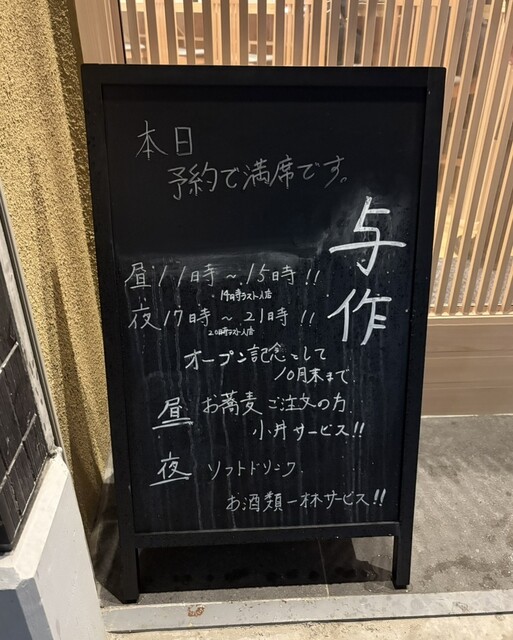 本日
予約で満席です。
与作
昼11時～15時!!
14時ラスト入店
夜17時～21時!!
20時ラスト入店
オープン記念として
10月末まで
昼 お蕎麦ご注文の方
小丼サービス!!
夜 ソフトドリンク
お酒類一杯サービス!!